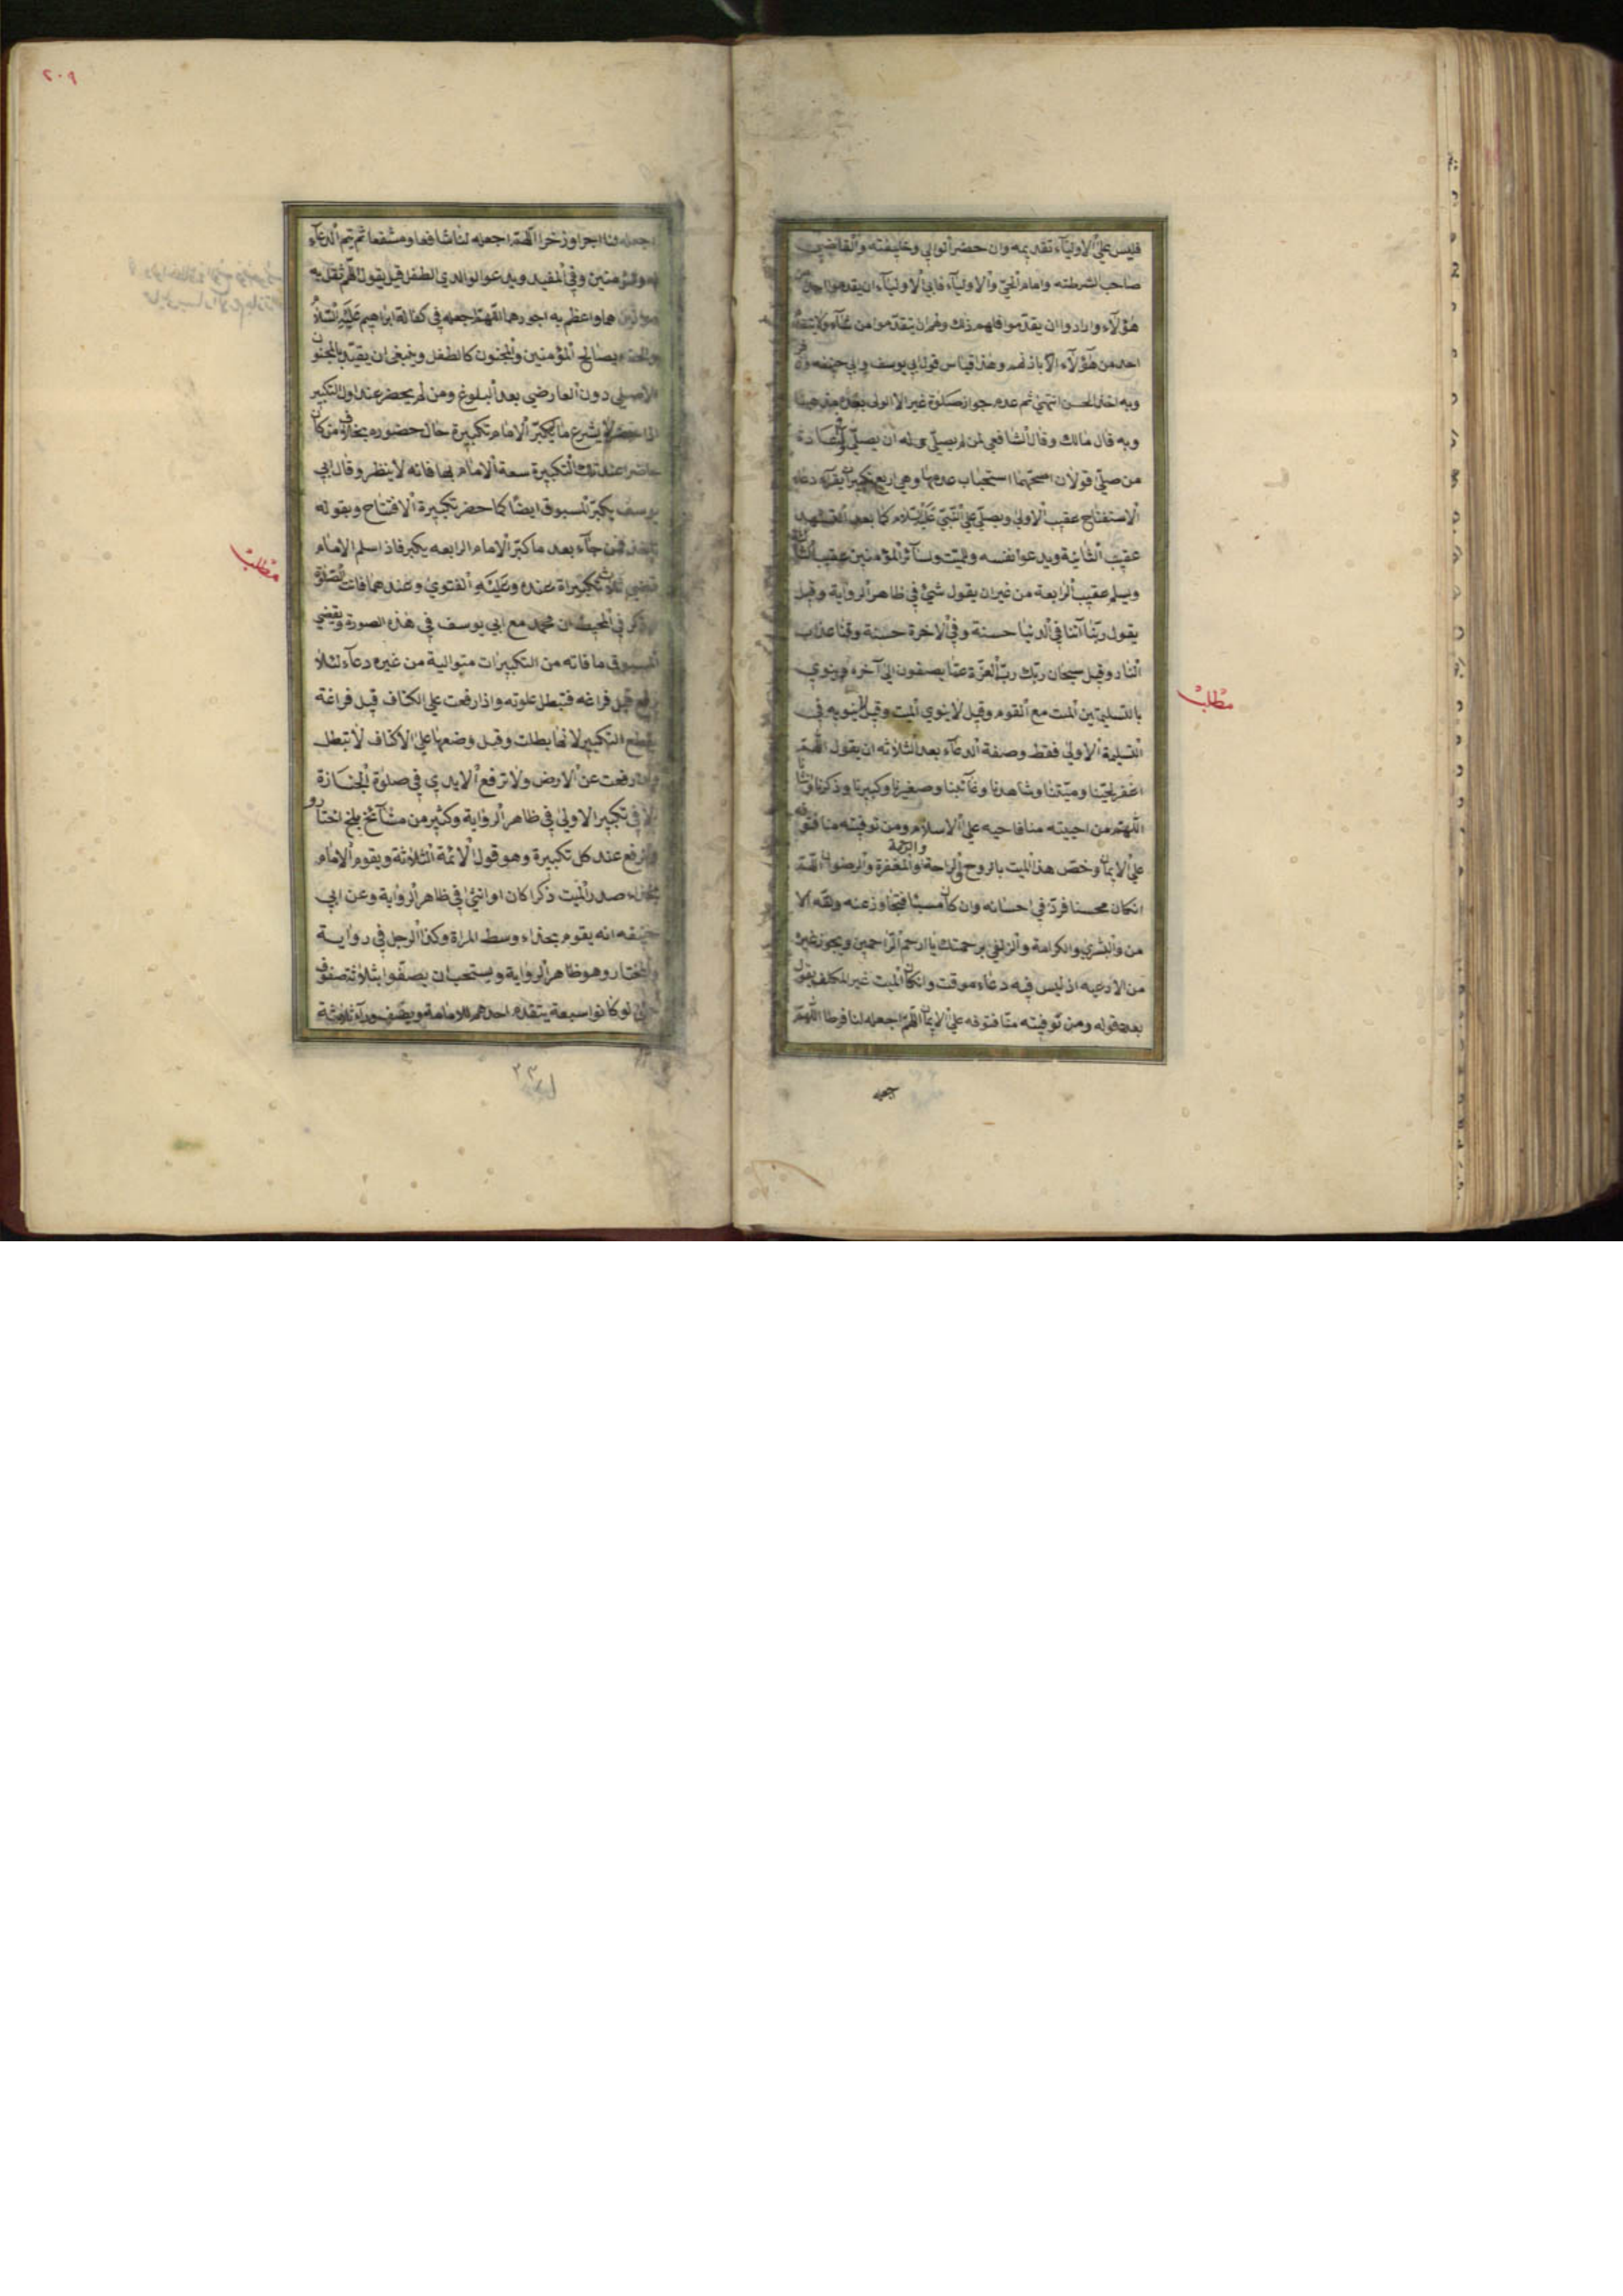 فليس علي الاولياء تقديمه وان حضر الوالي وخليفته والقاضي
صاحب الشرطته وامام الحي والاولياء فابي الاولياء ان يقدموا احدا من
هؤلاء وارادوا ان يقدموا فلهم ذلك ولهم ان يتقدموا من شاء ولا يتقدم
احد من هؤلاء الا باذنهم وهذا قياس قول ابي يوسف وابي حنيفه وزفر
وبه اخذ الحسن انتهي ثم عدم جواز صلوة غير الاولي بعده مذهبنا
وبه قال مالك وقال الشافعي لمن لم يصلي له ان يصلي
من صلي قولان اصحهما استحباب عدمها وهي اربع تكبيرات يقرأ دعاء
الاستفتاح عقيب الاولي ويصلي علي النبي عليه السلام كما بعد التشهد
عقيب الثانية ويدعوا لنفسه وللميت ولسائر المؤمنين عقيب الثالثة
ويسلم عقيب الرابعة من غير ان يقول شئ في ظاهر الرواية وقيل
يقول ربنا آتنا في الدنيا حسنة وفي الاخرة حسنة وقنا عذاب
النار وقيل سبحان ربك رب العزة عما يصفون الي آخره وينوي
بالتسليمتين الميت مع القوم وقيل لا ينوي الميت وقيل ينويه في
التسليمة الاولي فقط وصفة الدعاء بعد الثلاثه ان يقول اللهم
اغفر لحينا وميتنا وشاهدنا وغائبنا وصغيرنا وكبيرنا وذكرنا وانثانا
اللهم من احييته منا فاحيه علي الاسلام ومن توفيته منا فتوفه
علي الايمان وخص هذا الميت بالروح والراحة والرحمة والمغفرة والرضوان اللهم
انكان محسنا فزد في احسانه وان كان مسيئا فتجاوز عنه ولقه الا
من والبشري والكرامة والزلفي برحمتك يا ارحم الراحمين ويجوز غيره
من الادعيه اذ ليس فيه دعاء موقت وانكان الميت غير المكلف يقول
بعد قوله ومن توفيته منا فتوفه علي الايمان اللهم اجعله لنا فرطا اللهم
مطلب
٢٠٩
اجعله لنا اجرا وذخرا اللهم اجعله لنا شافعا ومشفعا ثم يتم الدعاء
وللمؤمنين وفي المفيد ويدعوا لوالدي الطفل قيل يقول اللهم ثقل به
موازينهما واعظم به اجورهما اللهم اجعله في كفالة ابراهيم عليه السلام
والحقه بصالح المؤمنين والمجنون كالطفل وينبغي ان يقيد بالمجنون
الاصلي دون العارضي بعد البلوغ ومن لم يحضر عند اول التكبير
اذا حضر لا يشرع ما يكبر الامام تكبيرة حال حضوره بخلاف من كان
حاضرا عند تلك التكبيرة سعة الامام بها فانه لا ينظر وقال ابي
يوسف يكبر المسبوق ايضا كما حضر تكبيرة الافتتاح وبقوله
فمن جاء بعد ما كبر الامام الرابعه يكبر فاذا سلم الامام
قضي ثلاث تكبيراة عنده وعليه الفتوي وعندهما فاتت الصلوة
وذكر في المحيط ان محمد مع ابي يوسف في هذه الصورة ويقضي
المسبوق ما فاته من التكبيرات متوالية من غير دعاء لئلا
يرفع قبل فراغه فتبطل صلوته واذا رفعت علي الكتاف قبل فراغة
يقطع التكبير لانها بطلت وقبل وضعها علي الاكتاف لا تبطل
وان رفعت عن الارض ولا ترفع الايدي في صلوة الجنازة
الا في تكبير الاولي في ظاهر الرواية وكثير من مشائخ بلخ اختاروا
الرفع عند كل تكبيرة وهو قول الائمة الثلاثة ويقوم الامام
بحذاء صدر الميت ذكرا كان او انثي في ظاهر الرواية وعن ابي
حنيفه انه يقوم بحذاء وسط المراة وكذا الرجل في رواية
والمختار وهو ظاهر الرواية ويستحب ان يصفوا بثلاثة صفوف
حتي لو كانوا سبعة يتقدم احدهم للامامة ويصف وراءه ثلاثة
مطلب